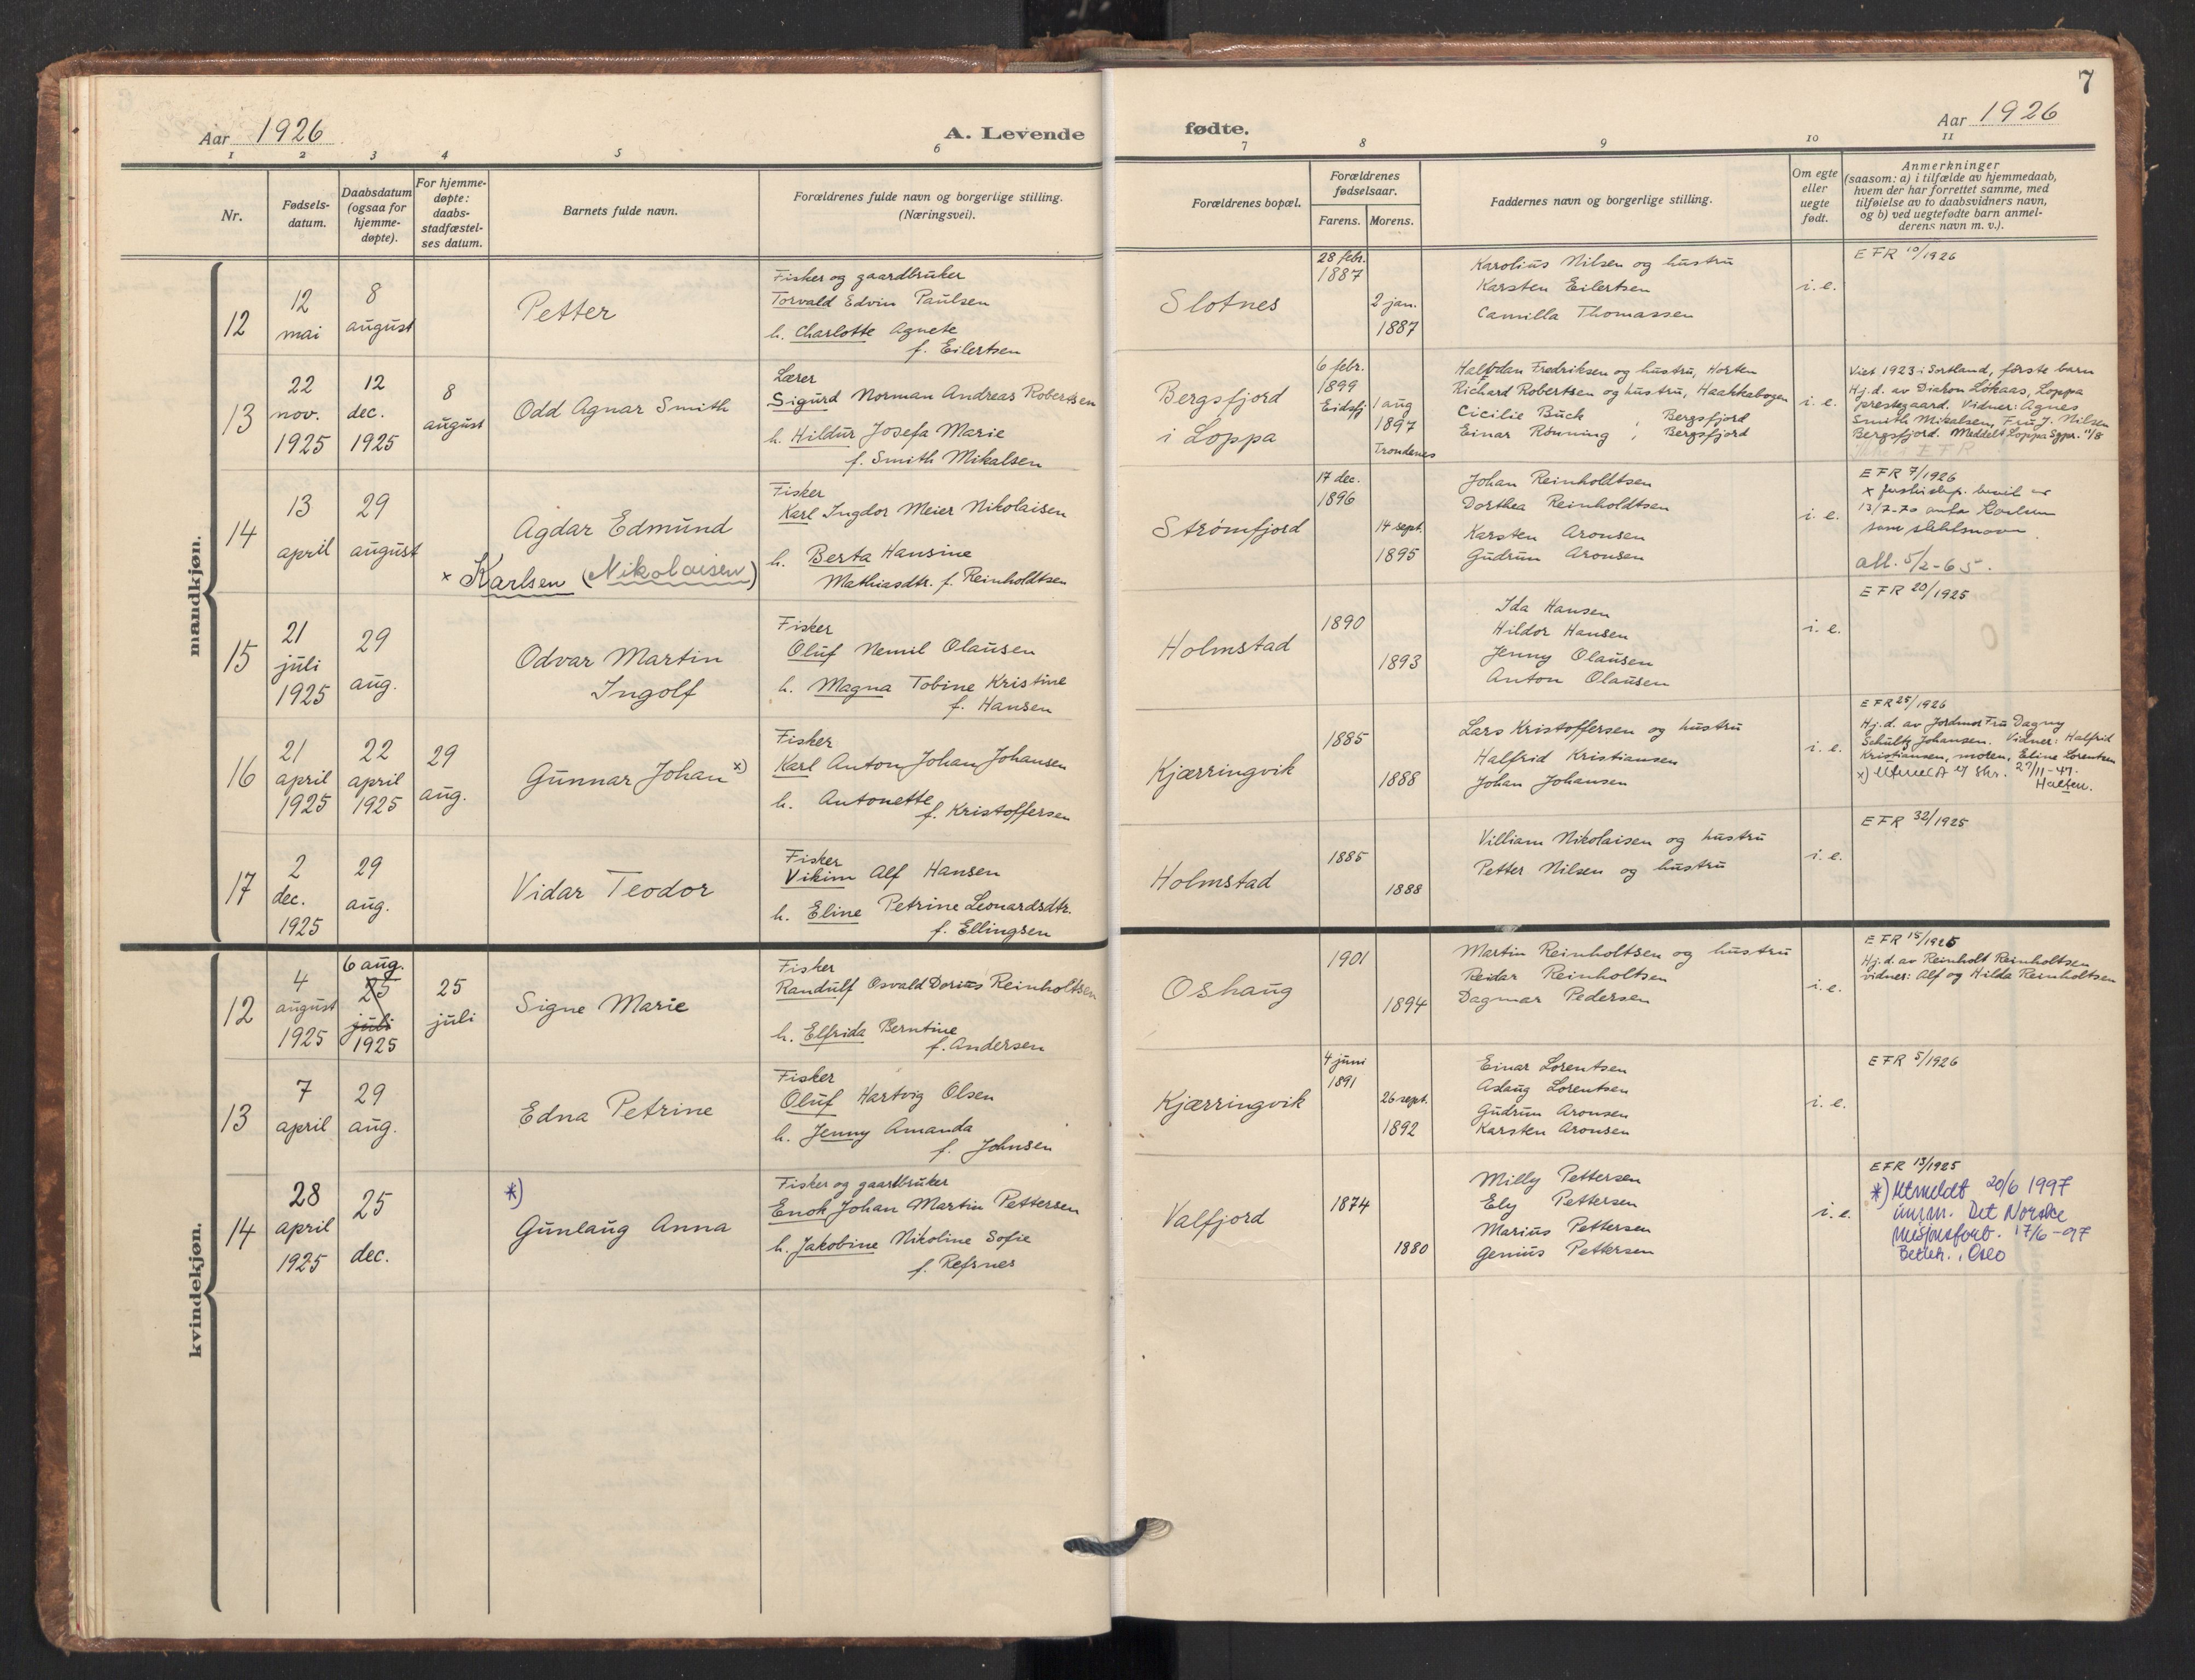 7
Aar 1926
A. Levende
fødte.
Aar 1926
1 2 3 4 5 6
7 8 9 10 11
Nr.
Fødsels-
datum.
Daabsdatum
(ogsaa for
hjemme-
døpte).
For hjemme-
døpte:
daabs-
stadfæstel-
ses datum.
Barnets fulde navn.
Forældrenes fulde navn og borgerlige stilling.
(Næringsvei).
Forældrenes bopæl.
Forældrenes
fødselsaar.
Farens. Morens.
Faddernes navn og borgerlige stilling.
Om egte
eller
uegte
født.
Anmerkninger
(saasom: a) i tilfælde av hjemmedaab,
hvem der har forrettet samme, med
tilføielse av to daabsvidners navn,
og b) ved uegtefødte barn anmel-
derens navn m. v.).
mandkjøn.
12
12
mai
8
august
Petter
Fisker og gaardbruker
Torvald Edvin Paulsen
h. Charlotte Agnete
f. Eilertsen
Slotnes
28 febr.
1887
2 jan.
1887
Karolius Nilsen og hustru
Karsten Eilertsen
Camilla Thomassen
i. e.
EFR 10/1926
13
22
nov.
1925
12
dec.
1925
8
august
Odd Agnar Smith
Lærer
Sigurd Norman Andreas Robertsen
h. Hildur Josefa Marie
f. Smith Mikalsen
Bergsfjord
i Loppa
6 febr.
1899
Eidsfj
1 aug
1897
Trondenes
Halfdan Fredriksen og hustru, Horten
Richard Robertsen og hustru, Haakkabogen
Cicilie Buck, Bergsfjord
Einar Rønning, Bergsfjord
i. e.
Viet 1923 i Sortland, første barn
Hj.d. av Diakon Lökaas, Loppa
prestegaard. Vidner: Agnes
Smith Mikalsen, Fru J. Nilsen
Bergsfjord. Meddelt Loppa Sgpr. 11/8
Ikke i EFR
14
13
april
29
august
Agdar Edmund
× Karlsen (Nikolaisen)
Fisker
Karl Ingdor Meier Nikolaisen
h. Berta Hansine
Mathiasdtr. f. Reinholdtsen
Strømfjord
17 dec.
1896
14 sept.
1895
Johan Reinholdtsen
Dorthea Reinholdtsen
Karsten Aronsen
Gudrun Aronsen
i. e.
EFR 7/1926
13/7-70 Karlsen
som slektsnavn.
att. 5/2-65.
15
21
juli
1925
29
aug.
Odvar Martin
Ingolf
Fisker
Oluf Nemil Olausen
h. Magna Tobine Kristine
f. Hansen
Holmstad
1890
1893
Ida Hansen
Hildor Hansen
Jenny Olausen
Anton Olausen
i. e.
EFR 20/1925
16
21
april
1925
22
april
1925
29
aug.
Gunnar Johan ×)
Fisker
Karl Anton Johan Johansen
h. Antonette
f. Kristoffersen
Kjærringvik
1885
1888
Lars Kristoffersen og hustru
Halfrid Kristiansen
Johan Johansen
i. e.
EFR 25/1926
Hj.d. av Jordmor Fru Dagny
Schultz Johansen. Vidner: Halfrid
Kristiansen, moren, Eline Lorentsen
17
2
dec.
1925
29
aug.
Vidar Teodor
Fisker
Vikim Alf Hansen
h. Eline Petrine Leonardsdtr.
f. Ellingsen
Holmstad
1885
1888
Villiam Nikolaisen og hustru
Petter Nilsen og hustru
i. e.
EFR 32/1925
kvindekjøn.
12
4
august
1925
6 aug.
25
juli
1925
25
juli
Signe Marie
Fisker
Randulf Osvald Dorius Reinholtsen
h. Elfrida Berntine
f. Andersen
Oshaug
1901
1894
Martin Reinholtsen og hustru
Reidar Reinholtsen
Dagmar Pedersen
i. e.
EFR 15/1925
Hj.d. av Reinholt Reinholtsen
vidner: Alf og Hilda Reinholtsen
13
7
april
29
aug.
Edna Petrine
Fisker
Oluf Hartvig Olsen
h. Jenny Amanda
f. Johnsen
Kjærringvik
4 juni
1891
26 sept.
1892
Einar Lorentsen
Aslaug Lorentsen
Gudrun Aronsen
Karsten Aronsen
i. e.
EFR 5/1926
14
28
april
1925
25
dec.
*)
Gunlaug Anna
Fisker og gaardbruker
Enok Johan Martin Pettersen
h. Jakobine Nikoline Sofie
f. Refsnes
Valfjord
1874
1880
Milly Pettersen
Ely Pettersen
Marius Pettersen
Genius Pettersen
i. e.
EFR 13/1925
*) Utmeldt 20/6 1997
innm. Det Norske
Misjonsforb. 17/6-97
Betleh., Oslo